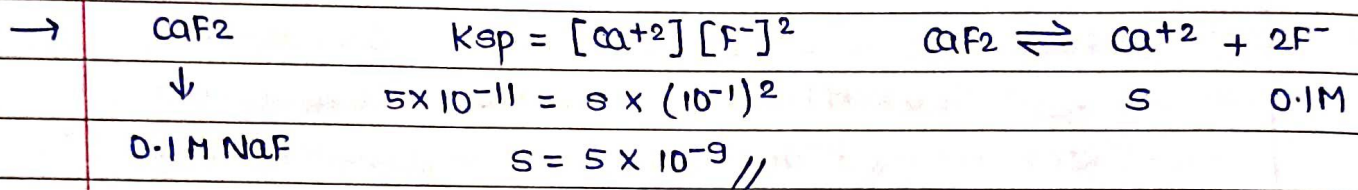 → CaF2 Ksp = [Ca+2] [F-]² CaF2 ⇌ Ca+2 + 2F-
↓ 5×10-11 = s × (10-1)² S 0.1M
0.1M NaF S = 5 × 10-9 //